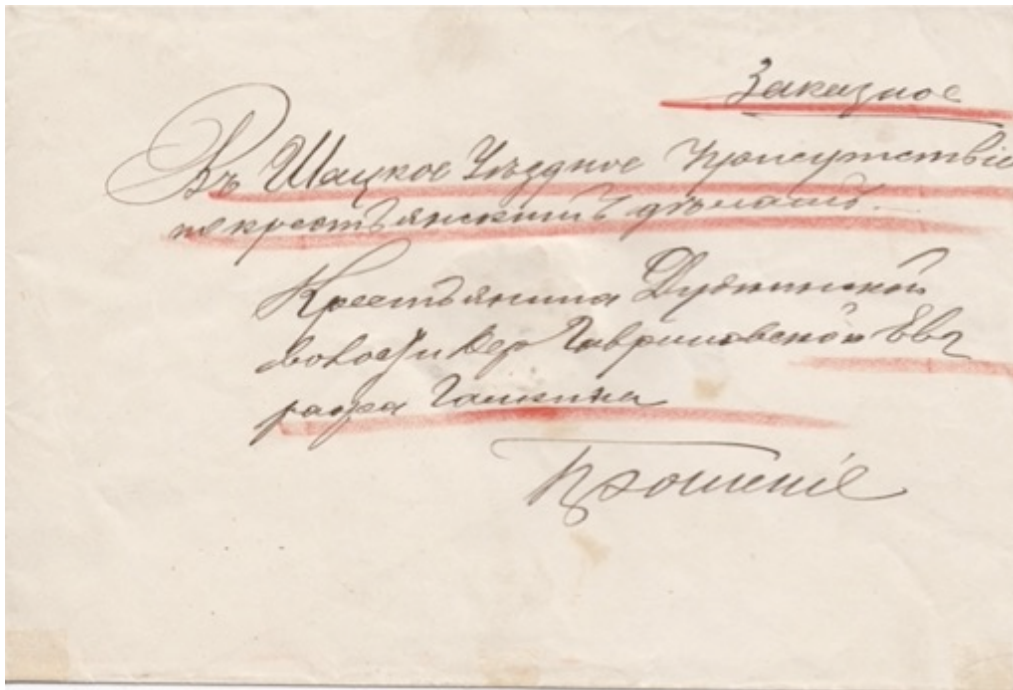 Заказное
Въ Шацкое Уѣздное Присутствіе
по крестьянскимъ дѣламъ.
Крестьянина
волости дер Гавриловской Евг
рафа Галкина
Прошеніе